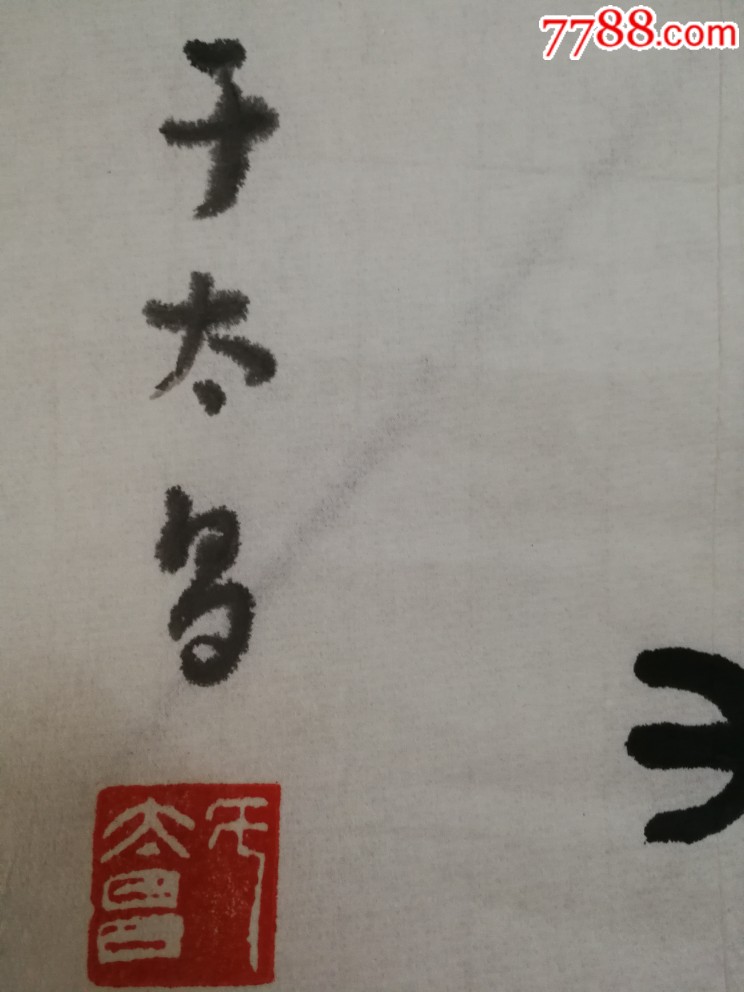 7788.com
于太昌
于太昌